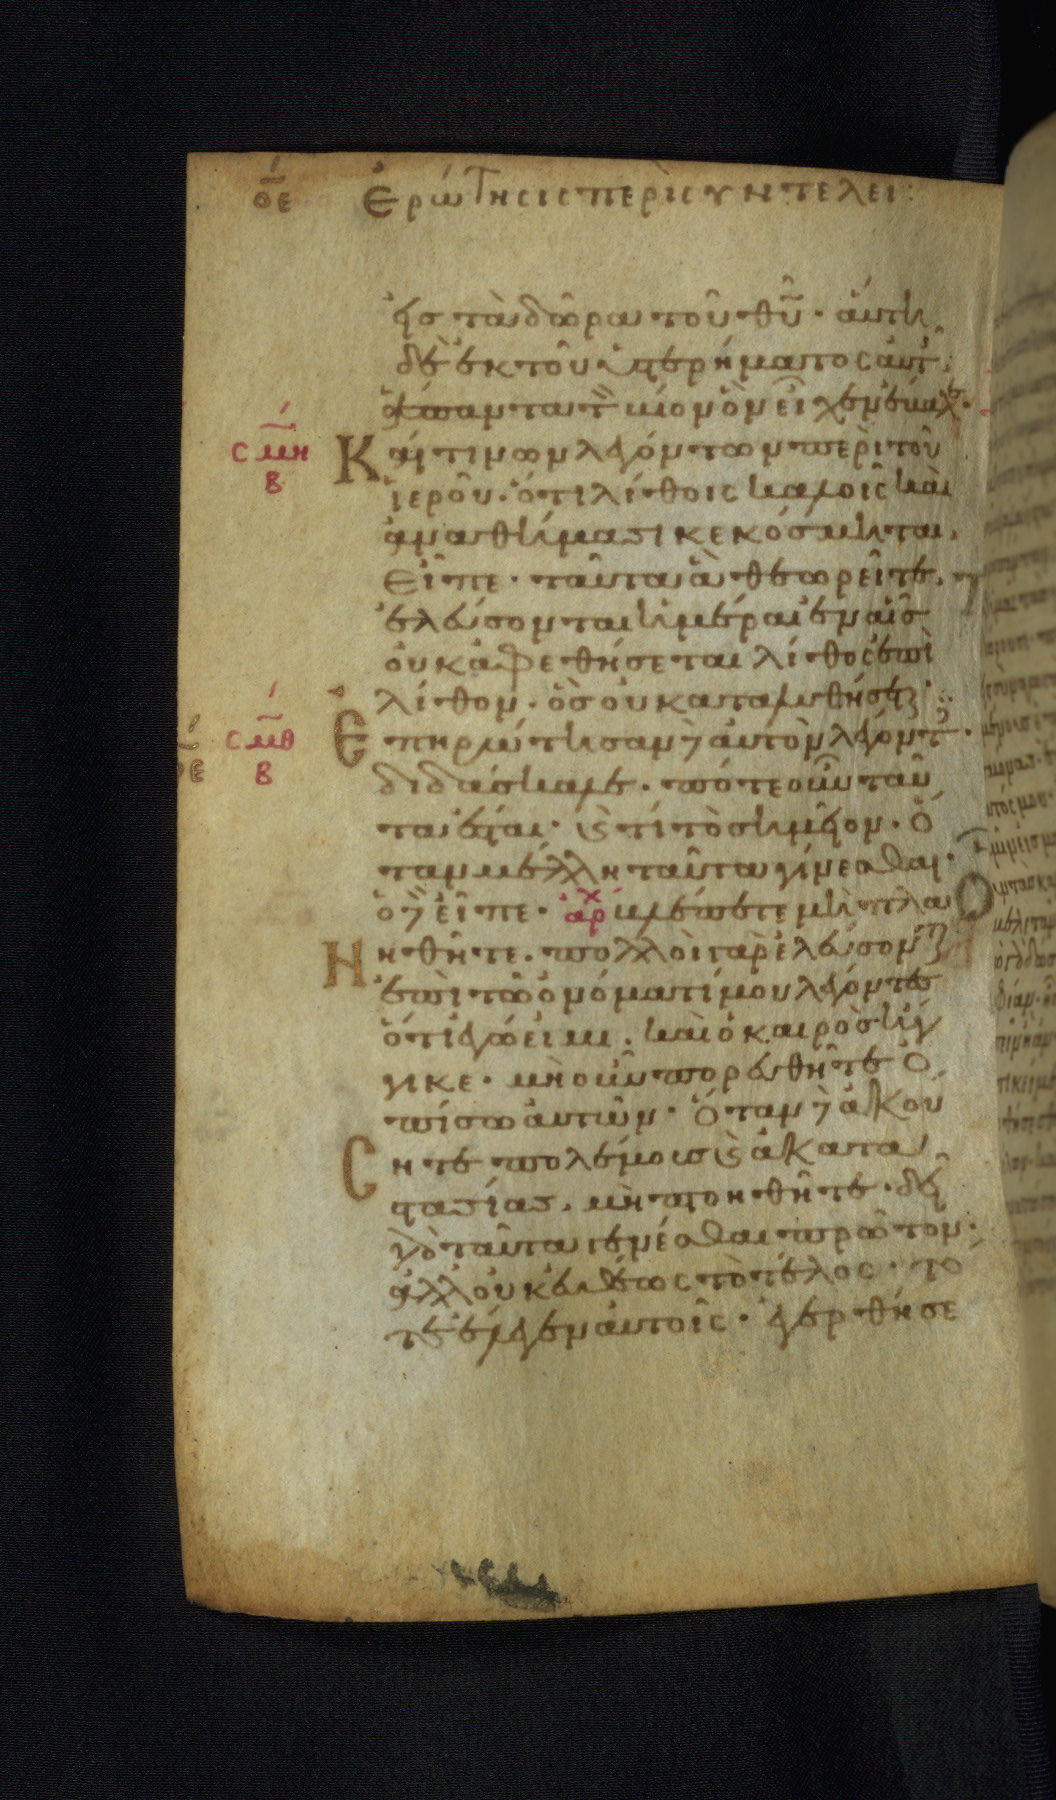 ο̄ε Ἐρώτησις περὶ συντελεί:
εἰς τὰ δῶρα τοῦ θῦ· αὕτη
δὲ ἐκ τοῦ ὑστερήματος αὐτ
τὸν βίον ὃν εἶχεν
σμη Καί τινων λεγόντων περὶ τοῦ
β ἱεροῦ· ὅτι λίθοις καλοῖς καὶ
ἀναθήμασι κεκόσμηται,
εἶπε· ταῦτα ἃ θεωρεῖτε,
ἐλεύσονται ἡμέραι ἐν αἷς
οὐκ ἀφεθήσεται λίθος ἐπὶ
λίθον· ὃς οὐ καταλυθήσεται
σμθ Ἐπηρώτησαν δὲ αὐτὸν λέγοντ
β διδάσκαλε· πότε οὖν ταῦ
τα ἔσται· καὶ τί τὸ σημεῖον· ὅ
ταν μέλλη ταῦτα γίνεσθαι·
ὁ δὲ εἶπε· ἀρχ βλέπετε μὴ πλα
νηθῆτε· πολλοὶ γὰρ ἐλεύσονται
ἐπὶ τῶ ὀνόματί μου λέγοντες
ὅτι ἐγώ εἰμι. καὶ ὁ καιρὸς ἤγ
γικε· μὴ οὖν πορευθῆτε ὀ
πίσω αὐτῶν· Ὅταν δὲ ἀκού
σητε πολέμους καὶ ἀκατα
στασίας, μὴ πτοηθῆτε· δεῖ
γὰρ ταῦτα γενέσθαι πρῶτον·
ἀλλ οὐκ εὐθέως τὸ τέλος· τό
τε ἔλεγεν αὐτοῖς· ἐγερθήσε